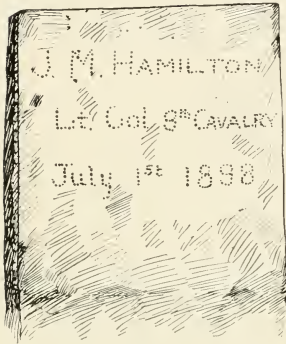 J. M. HAMILTON
Lt. Col. 9th CAVALRY
July 1st 1898